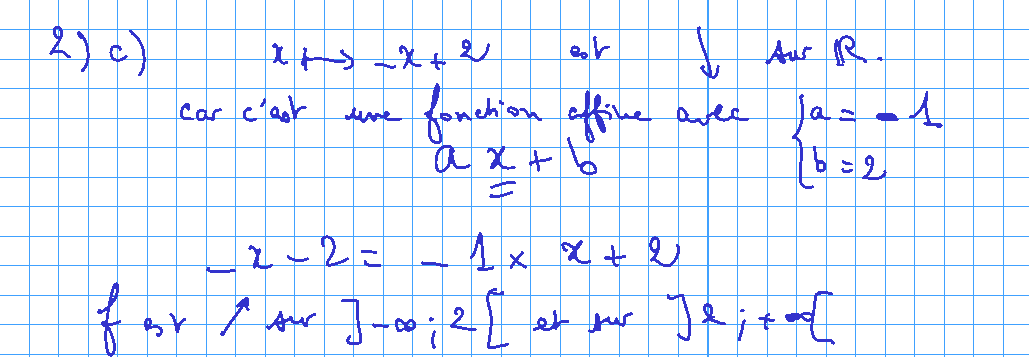 2) c) x ⟼ -x + 2 est ↓ sur ℝ.
car c'est une fonction affine avec { a = - 1
a x + b { b = 2
- x - 2 = - 1 × x + 2
f est ↗ sur ]-∞ ; 2[ et sur ]2 ; + ∞[